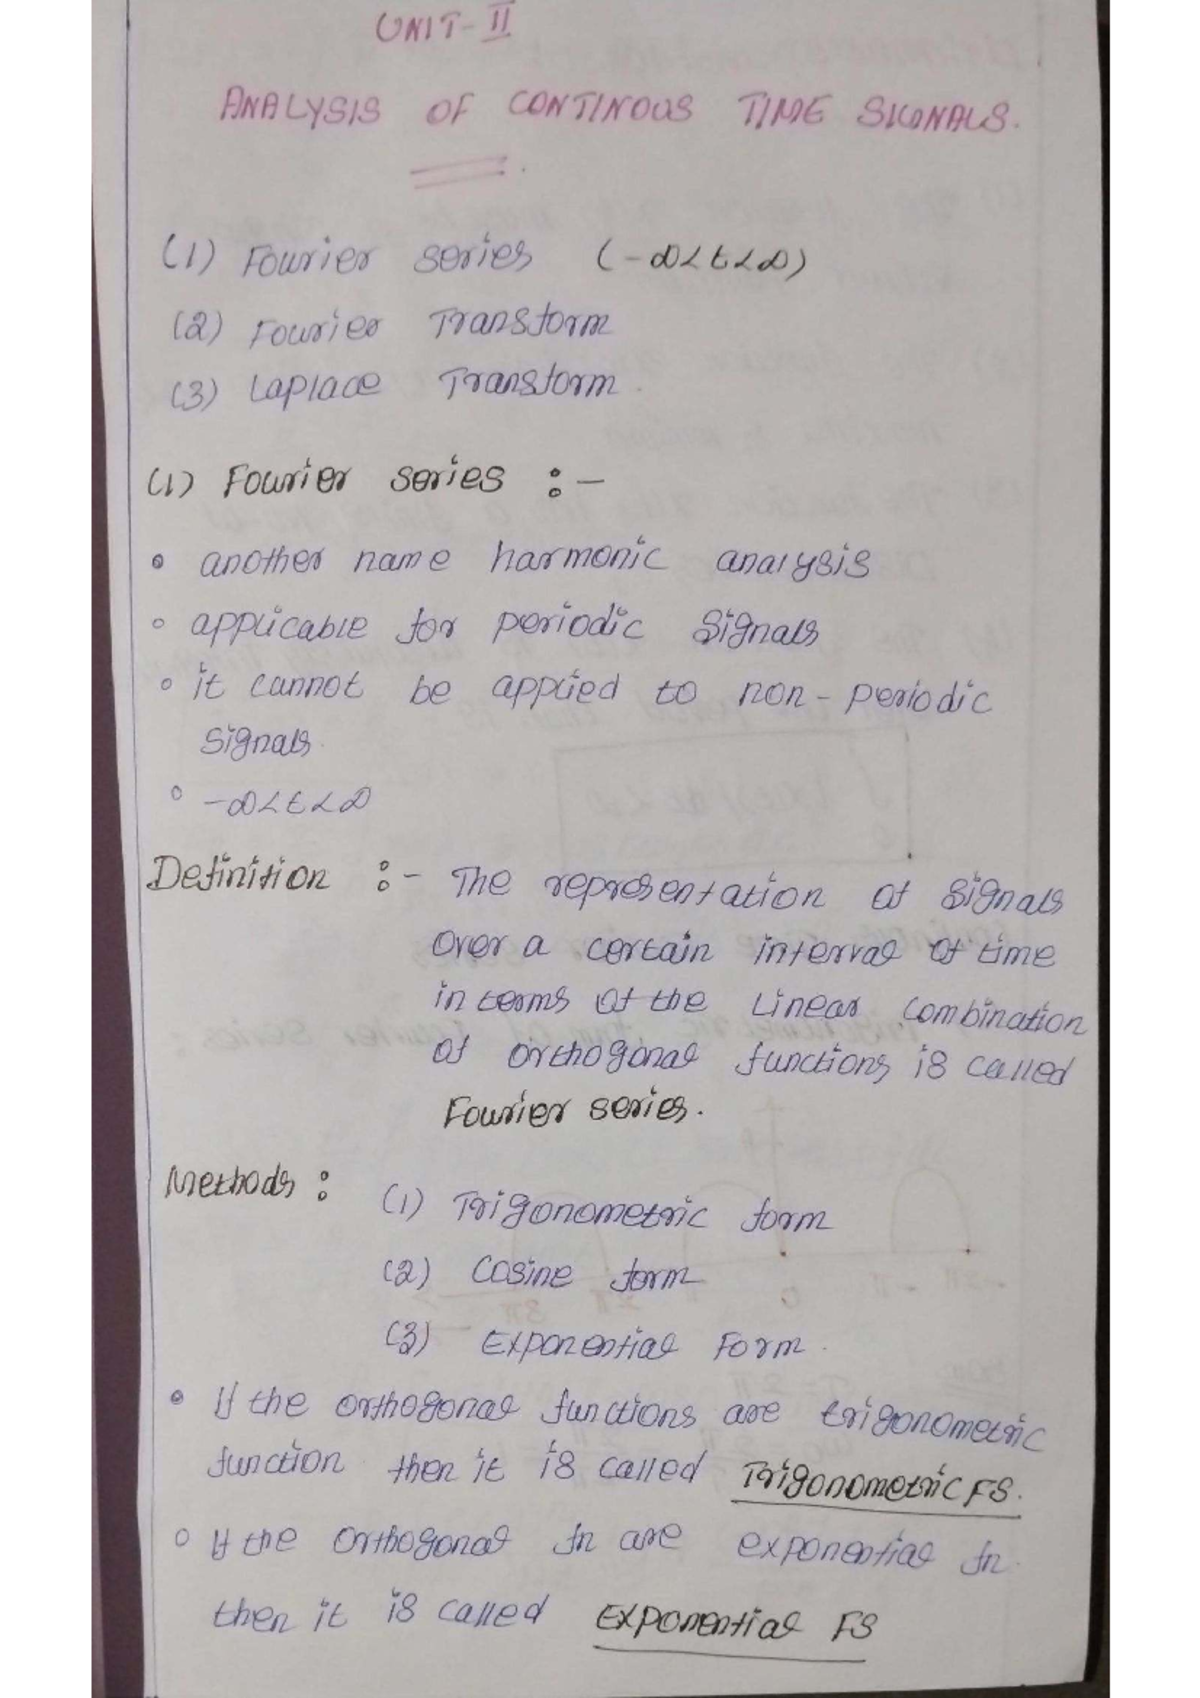 UNIT-II
ANALYSIS OF CONTINOUS TIME SIGNALS.
(1) Fourier series (-∞<t<∞)
(2) Fourier Transform
(3) Laplace Transform.
(1) Fourier series :-
• another name harmonic analysis
• applicable for periodic signals
• it cannot be applied to non-periodic
signals.
• -∞<t<∞
Definition :- The representation of signals
over a certain interval of time
in terms of the Linear combination
of orthogonal functions is called
Fourier series.
Methods : (1) Trigonometric form
(2) Cosine form
(3) Exponential Form.
• If the orthogonal functions are trigonometric
function then it is called Trigonometric FS.
• If the orthogonal fn are exponential fn.
then it is called Exponential FS